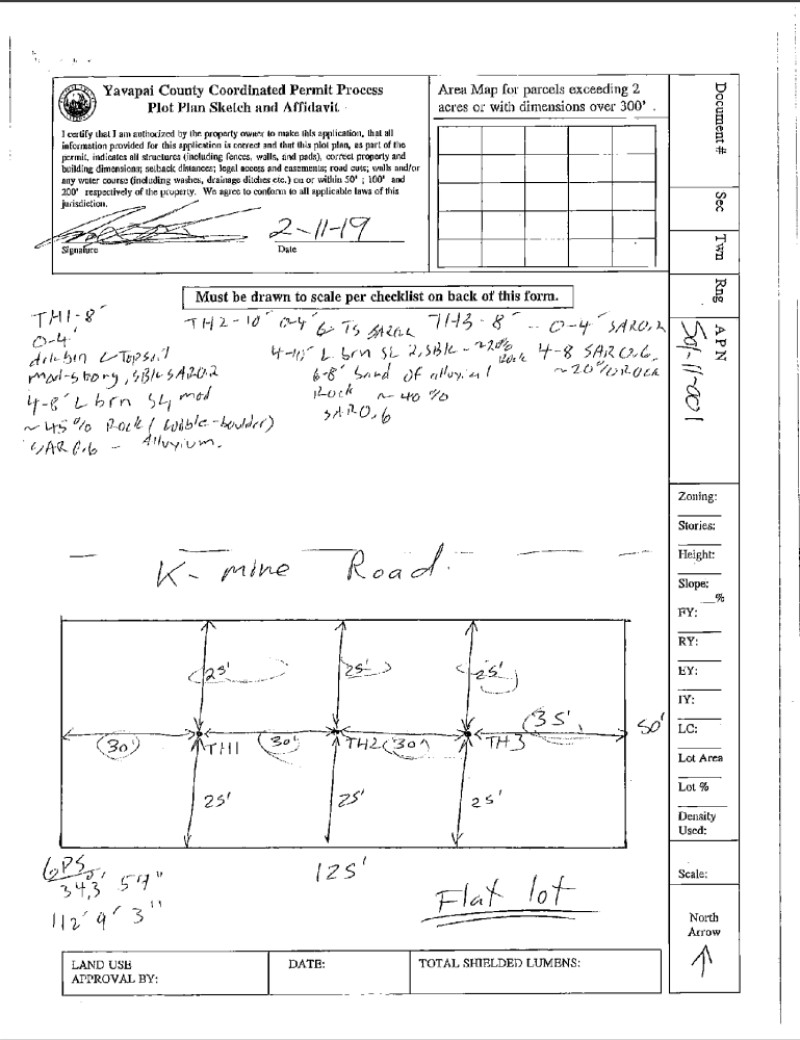 Yavapai County Coordinated Permit Process
Plot Plan Sketch and Affidavit
I certify that I am authorized by the property owner to make this application, that all
information provided for this application is correct and that this plot plan, as part of the
permit, indicates all structures (including fences, walls, and pads), correct property and
building dimensions; setback distances; legal access and easements; road cuts; walls and/or
any water course (including washes, drainage ditches etc.) on or within 50' ; 100' and
200' respectively of the property. We agree to conform to all applicable laws of this
jurisdiction.
2-11-19
Signature
Date
Area Map for parcels exceeding 2
acres or with dimensions over 300' .
Document #
Sec
Twn
Rng
APN
501-11-001
Must be drawn to scale per checklist on back of this form.
TH1-8'
0-4'
Topsoil
SBK SAR0.2
4-8' L brn SL mod
~45% Rock (cobble-boulder)
SAR 0.6 - Alluvium.
TH2-10' 0-4'
4-10' L brn SL 2, SBK - ~20% Rock
6-8' band of alluvial
Rock ~40%
SAR0.6
TH3-8' - 0-4' SAR0.2
4-8 SAR0.6
~20% Rock
K-mine Road
25'
25'
25'
30'
TH1
30'
TH2
30'
TH3
35'
50'
25'
25'
25'
GPS
112° 9' 3"
125'
Flat lot
Zoning:
Stories:
Height:
Slope:
%
FY:
RY:
EY:
IY:
LC:
Lot Area
Lot %
Density
Used:
Scale:
North
Arrow
LAND USE
APPROVAL BY:
DATE:
TOTAL SHIELDED LUMENS: